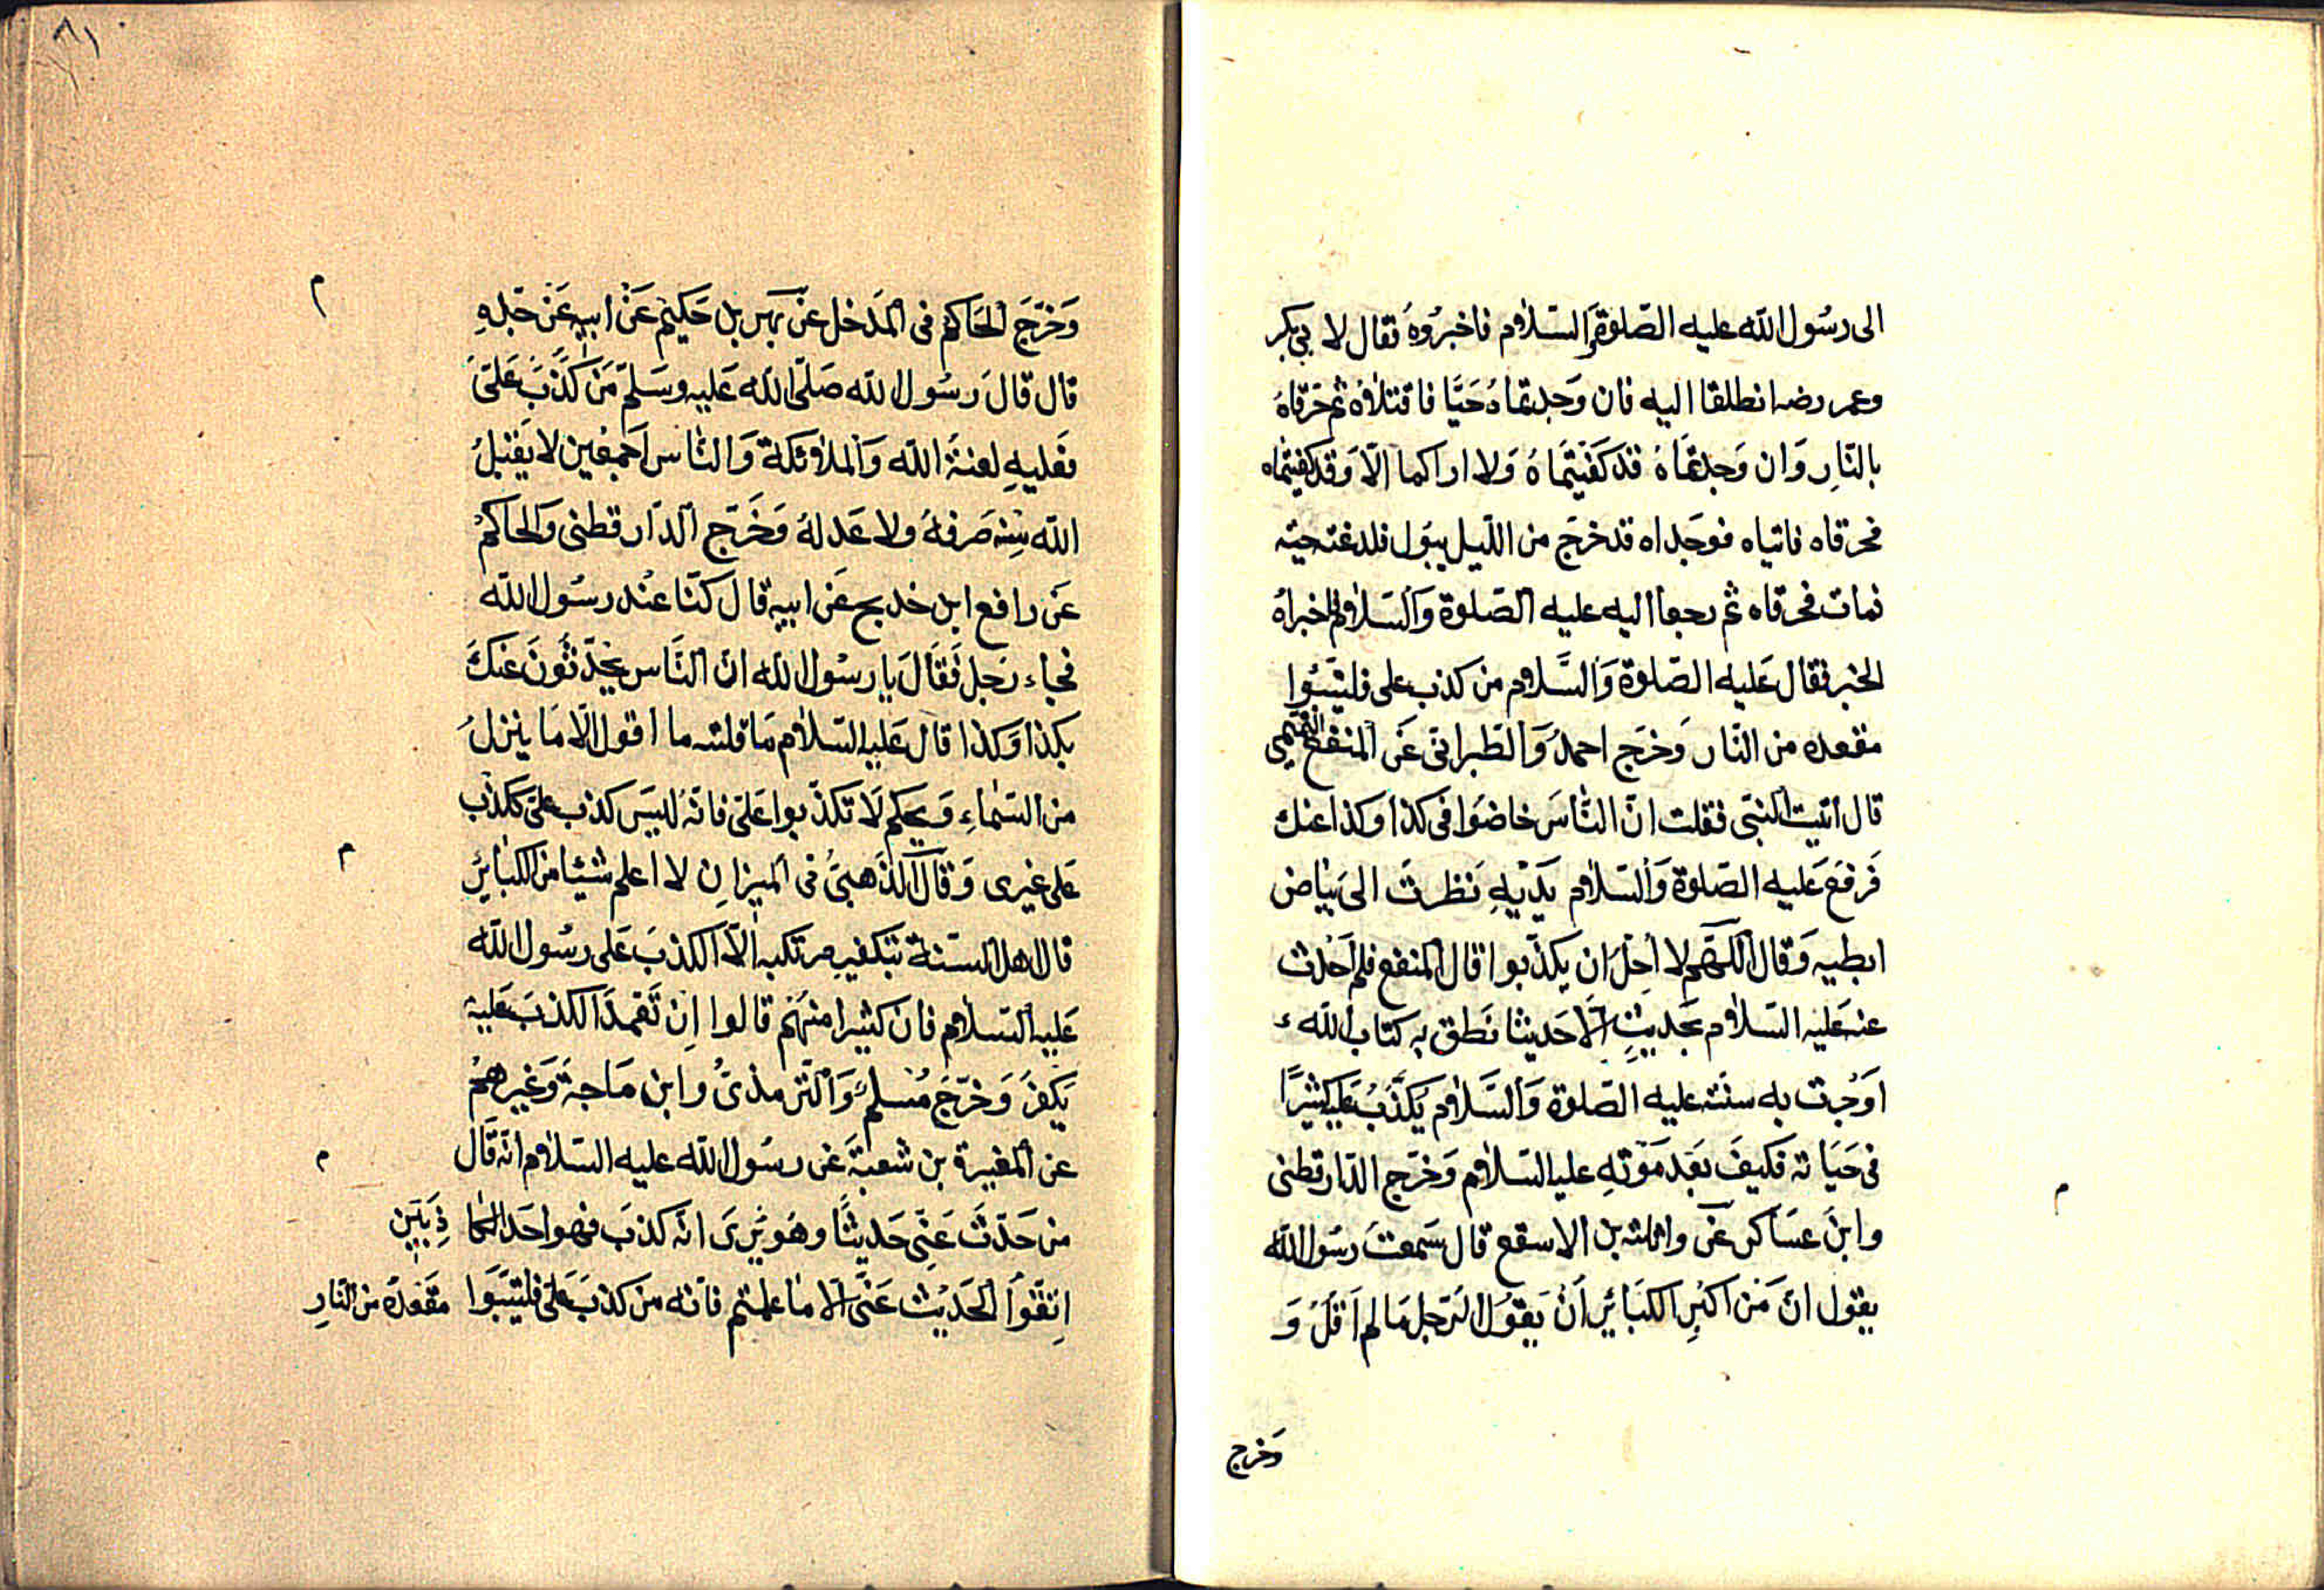 الى رسول الله عليه الصلوة والسلام فاخبروه فقال لا بى بكر
وعمر رضـ انطلقا اليه فان وجدتماه حيا فاقتلاه ثم حرقاه
بالنار وان وجدتماه قد كفيتماه ولا اراكما الا وقد كفيتماه
فحرقاه فاتياه فوجداه قد خرج من الليل يبول فلدغته حية
فمات فحرقاه ثم رجعا اليه عليه الصلوة والسلام فاخبراه
الخبر فقال عليه الصلوة والسلام من كذب على فليتبؤا
مقعده من النار وخرج احمد والطبرانى عن المنقع التميمى
قال اتيت النبى فقلت ان الناس خاضوا فى كذا وكذا عنك
فرفع عليه الصلوة والسلام يديه نظرت الى بياض
ابطيه وقال اللهم لا احل ان يكذبوا قال المنقع فلم احدث
عنه عليه السلام بحديث الا حديثا نطق به كتاب الله
او جرت به سنته عليه الصلوة والسلام يكذب عليه كثيرا
فى حياته فكيف بعد موته عليه السلام وخرج الدارقطنى
وابن عساكر عن واثلة بن الاسقع قال سمعت رسول الله
يقول ان من اكبر الكبائر ان يقول الرجل ما لم اقل و
وخرج
٨١
وخرج الحاكم فى المدخل عن بهز بن حكيم عن ابيه عن جده
قال قال رسول الله صلى الله عليه وسلم من كذب على
فعليه لعنة الله والملائكة والناس اجمعين لا يقبل
الله منه صرفه ولا عدله وخرج الدارقطنى والحاكم
عن رافع ابن خديج عن ابيه قال كنا عند رسول الله
فجاء رجل فقال يا رسول الله ان الناس يحدثون عنك
بكذا وكذا قال عليه السلام ما قلته ما اقول الا ما ينزل
من السماء ويحكم لا تكذبوا على فانه ليس كذب على ككذب
على غيرى وقال الذهبى فى الميزان لا اعلم شيئا من الكبائر
قال اهل السنة بتكفير مرتكبه الا الكذب على رسول الله
عليه السلام فان كثيرا منهم قالوا ان تعمد الكذب عليه
يكفر وخرج مسلم والترمذى وابن ماجة وغيرهم
عن المغيرة بن شعبة عن رسول الله عليه السلام انه قال
من حدث عنى حديثا وهو يرى انه كذب فهو احد الكا ذبين
اتقوا الحديث عنى الا ما علمتم فانه من كذب على فليتبوا مقعده من النار